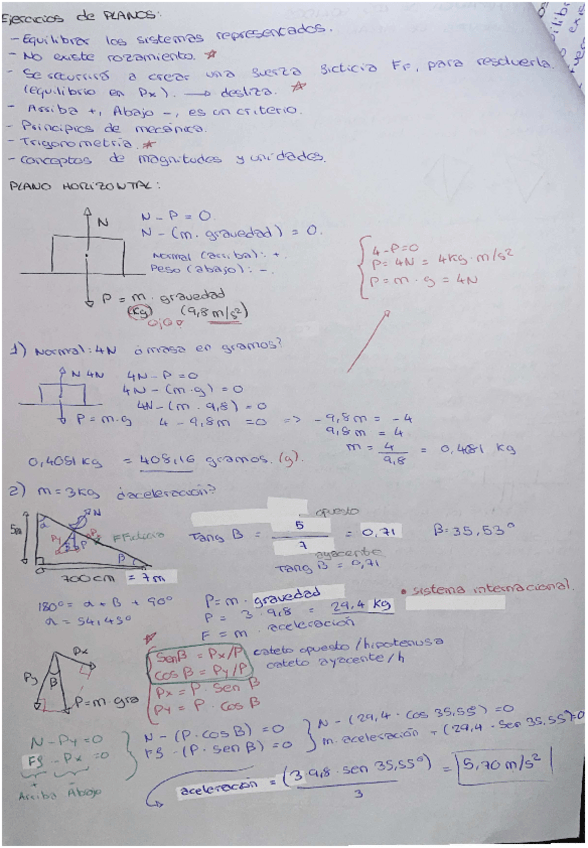 Ejercicios de PLANOS:
- Equilibrar los sistemas representados.
- No existe rozamiento. ☆
- Se recurrirá a crear una fuerza ficticia FF, para resolverla.
(equilibrio en Px). → desliza. ☆
- Arriba +, Abajo -, es un criterio.
- Principios de mecánica.
- Trigonometría. ☆
- Conceptos de magnitudes y unidades.
PLANO HORIZONTAL:
N
N - P = 0
N - (m. gravedad) = 0.
Normal (arriba): +.
Peso (abajo): -.
P = m. gravedad
(kg) (9,8 m/s²)
4 - P = 0
P = 4N = 4kg · m/s²
P = m · g = 4N
1) Normal: 4N ¿masa en gramos?
N 4N
4N - P = 0
4N - (m · g) = 0
4N - (m · 9,8) = 0
P = m · g
4 - 9,8m = 0 => - 9,8m = -4
9,8m = 4
m = 4/9,8 = 0,4081 kg
0,4081 kg = 408,16 gramos. (g).
2) m = 3kg ¿aceleración?
5m
α
N
Py
P
Px
FFicticia
β
700cm = 7m
Tang β = opuesto 5 / 7 ayacente = 0,71 β = 35,53°
Tang β = 0,71
180° = α + β + 90°
α = 54,45°
P = m. gravedad
P = 3 · 9,8 = 29,4 kg
F = m. aceleración
• sistema internacional
Px
Py
β
P = m · gra
sen β = Px/P
cos β = Py/P
cateto opuesto / hipotenusa
cateto ayacente / h
Px = P · sen β
Py = P · cos β
N - Py = 0
FF - Px = 0
+ -
Arriba Abajo
N - (P · cos β) = 0
FF - (P · sen β) = 0
N - (29,4 · cos 35,55°) = 0
m. aceleración - (29,4 · sen 35,55°) = 0
aceleración = (3 · 9,8 · sen 35,55°) / 3 = 5,70 m/s²